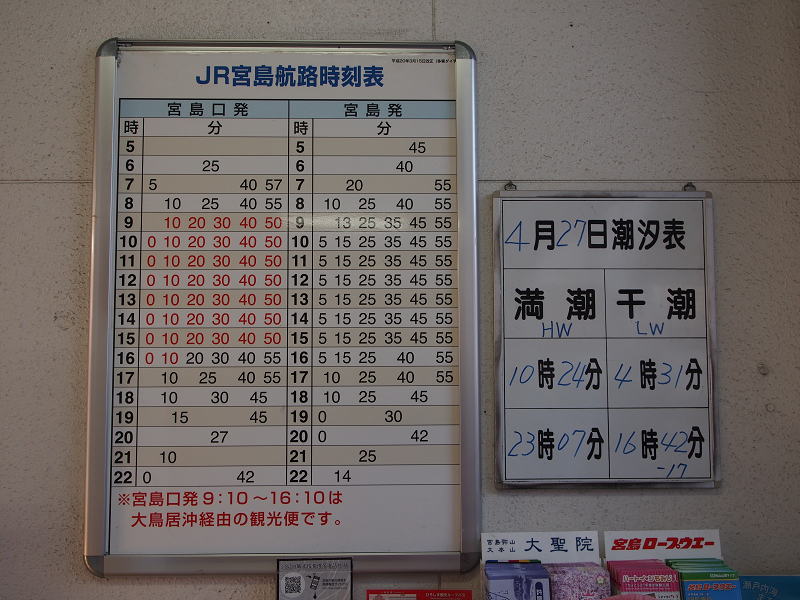 平成20年3月15日改正
JR宮島航路時刻表
宮島口発 宮島発
時 分 時 分
5 5 45
6 25 6 40
7 5 40 57 7 20 55
8 10 25 40 55 8 10 25 40 55
9 10 20 30 40 50 9 13 25 35 45 55
10 0 10 20 30 40 50 10 5 15 25 35 45 55
11 0 10 20 30 40 50 11 5 15 25 35 45 55
12 0 10 20 30 40 50 12 5 15 25 35 45 55
13 0 10 20 30 40 50 13 5 15 25 35 45 55
14 0 10 20 30 40 50 14 5 15 25 35 45 55
15 0 10 20 30 40 50 15 5 15 25 35 45 55
16 0 10 20 30 40 55 16 5 15 25 40 55
17 10 25 40 55 17 10 25 40 55
18 10 30 45 18 10 25 45
19 15 45 19 0 30
20 27 20 0 42
21 10 21 25
22 0 42 22 14
※宮島口発9:10～16:10は
大鳥居沖経由の観光便です。
4月27日潮汐表
満潮 干潮
HW LW
10時24分 4時31分
23時07分 16時42分
-17
宮島弥山
大本山
大聖院
宮島ロープウエー
瀬戸内海